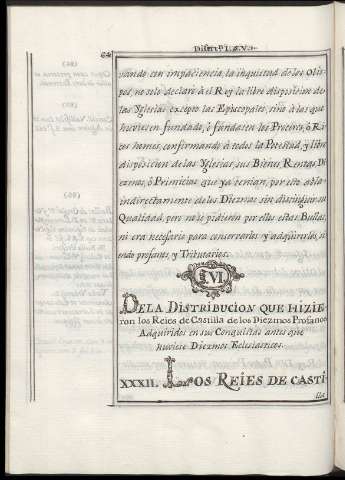 64
vando con impaciencia, la inquietud de los Obis-
pos, no solo declaró à el Rey la libre disposicion de
las Yglesias, excepto las Episcopales, sino à las que
huviesen fundado, ó fundasen los Proceres, ó Ri-
cos homes, confirmando à todos la Potestad, y libre
disposicion de las Yglesias, sus Bienes, Rentas, Di-
ezmos, ó Primicias que ya tenian, por esto abla
indirectamente de los Diezmos sin distinguir su
Qualidad, pero no se pidieron por ellos estas Bullas,
ni era necesario para conservarlos y adquirirlos, si-
endo profanos, y Tributarios.
§. VI.
DE LA DISTRIBUCION QUE HIZIE-
ron los Reies de Castilla de los Diezmos Profanos
Adquiridos en sus Conquistas antes que
huviese Diezmos Eclesiasticos.
XXXII. LOS REIES DE CASTI-
lla